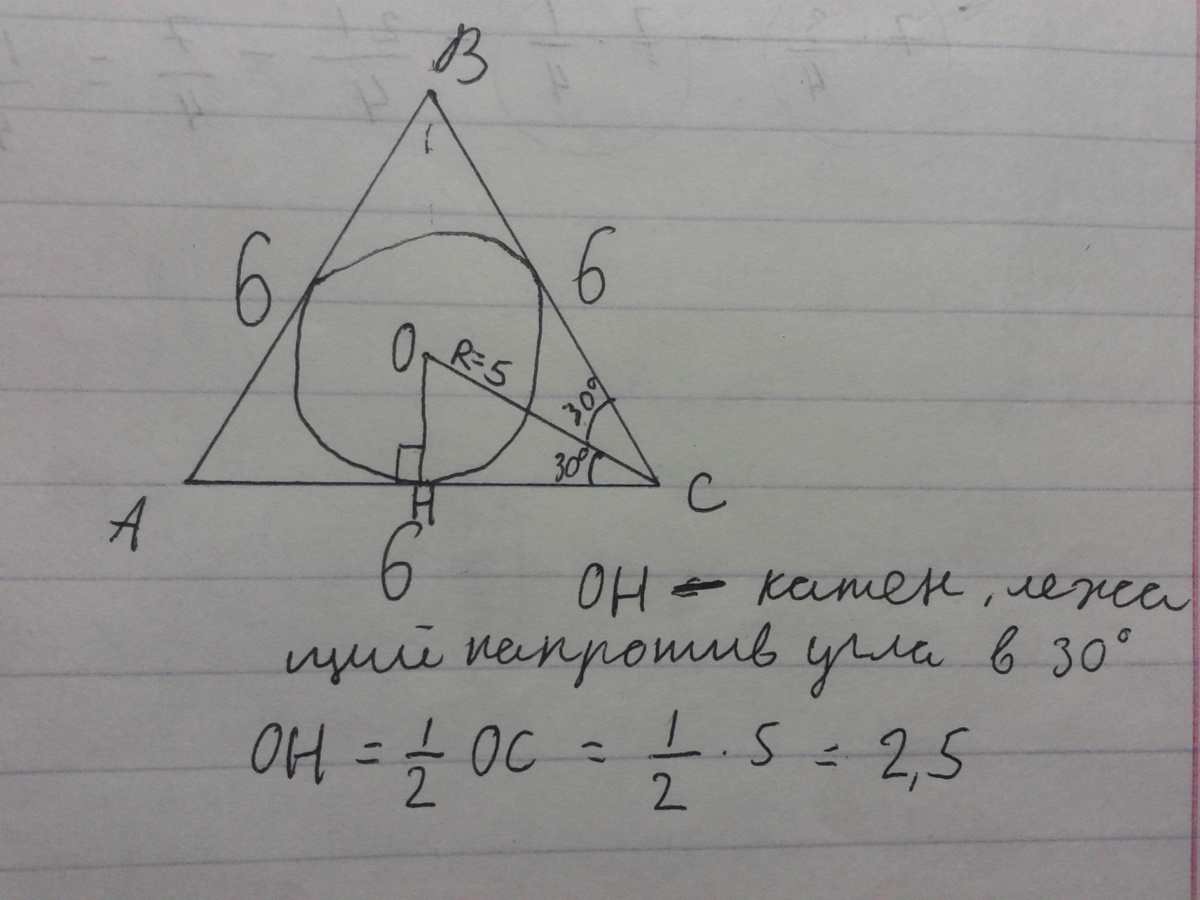 B
6
6
O
R=5
30°
30°
A
H
C
6
OH - катен, лежа
щий напротив угла в 30°
OH = 1/2 OC = 1/2 · 5 = 2,5